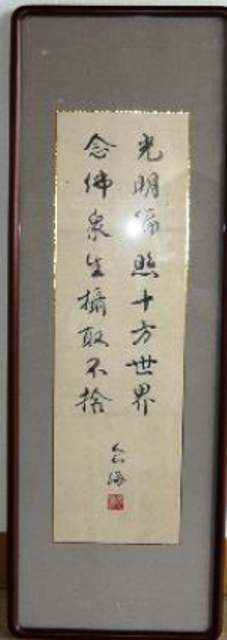 光明徧照十方世界
念佛衆生攝取不捨